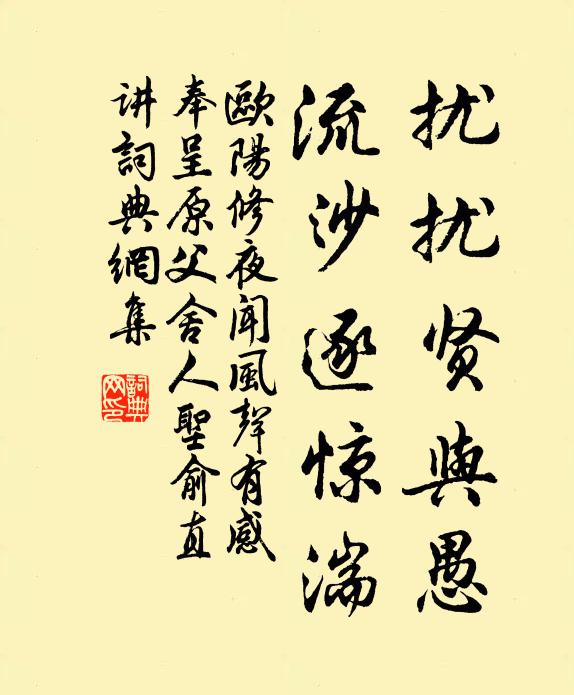 扰扰贤與愚
流沙逐惊湍
歐陽修夜闻風聲有感
奉呈原父舍人聖俞直
讲詞典網集
詞典
网印